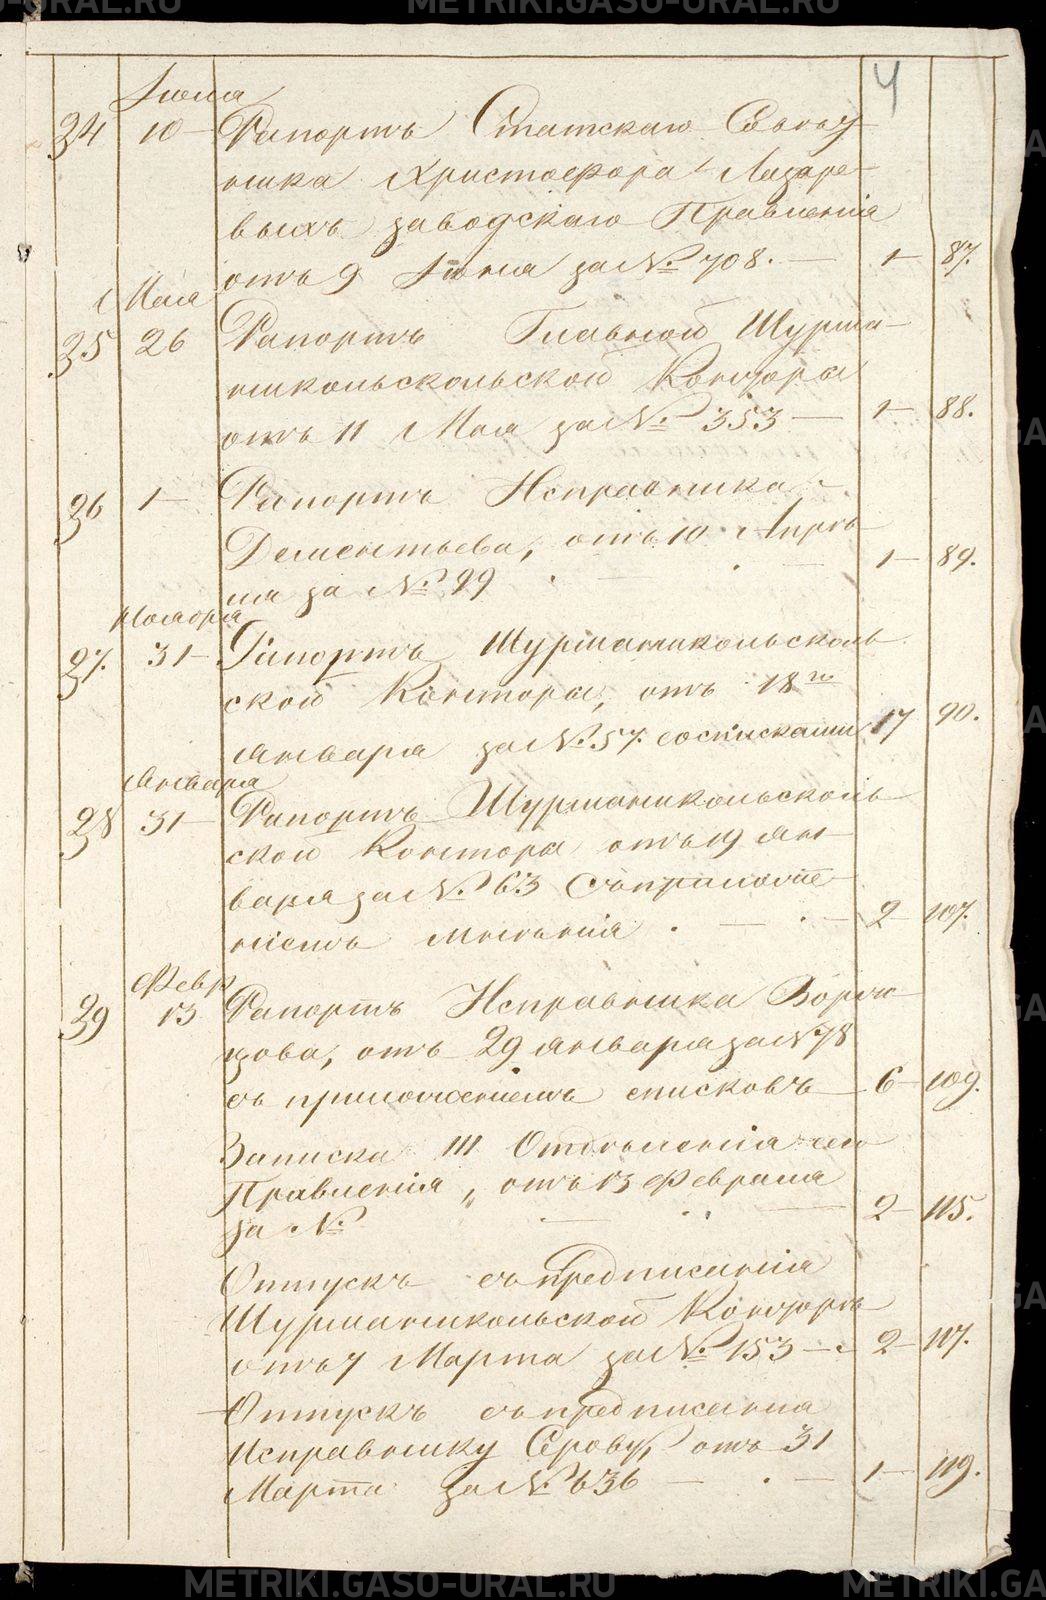 METRIKI.GASO-URAL.RU
4
Іюня
34 10 Рапортъ Статскаго Совѣт
ника Христофора Лазаре-
выхъ заводскаго Правленія
отъ 9 Іюня за № 708. — 1 87.
Мая
35 26 Рапортъ Главной Шурма-
никольскольской Конторы
отъ 11 Мая за № 353 — 1 88.
36 1 Рапортъ Исправника
Дементьева, отъ 10 Апрѣ-
ля за № 99 — 1 89.
37. 31 Рапортъ Шурманикольсколь
ской Конторы, отъ 18го
Января за № 57. со списками 17 90.
Января
38 31 Рапортъ Шурманикольсколь
ской Конторы отъ 19 Ян-
варя за № 63 съ приложе-
ніемъ мнѣнія — 2 107.
Февр
39 13 Рапортъ Исправника
отъ 29 Января за № 78
съ приложеніемъ списковъ 6 109.
Записка III Отдѣленія сего
Правленія, отъ 13 Февраля
за № — 2 115.
Отпускъ съ предписанія
Шурманикольской Конторѣ
отъ 7 Марта за № 153 — 2 117.
Отпускъ съ предписанія
Исправнику Серову, отъ 31
Марта за № 636 — 1 119.
METRIKI.GASO-URAL.RU